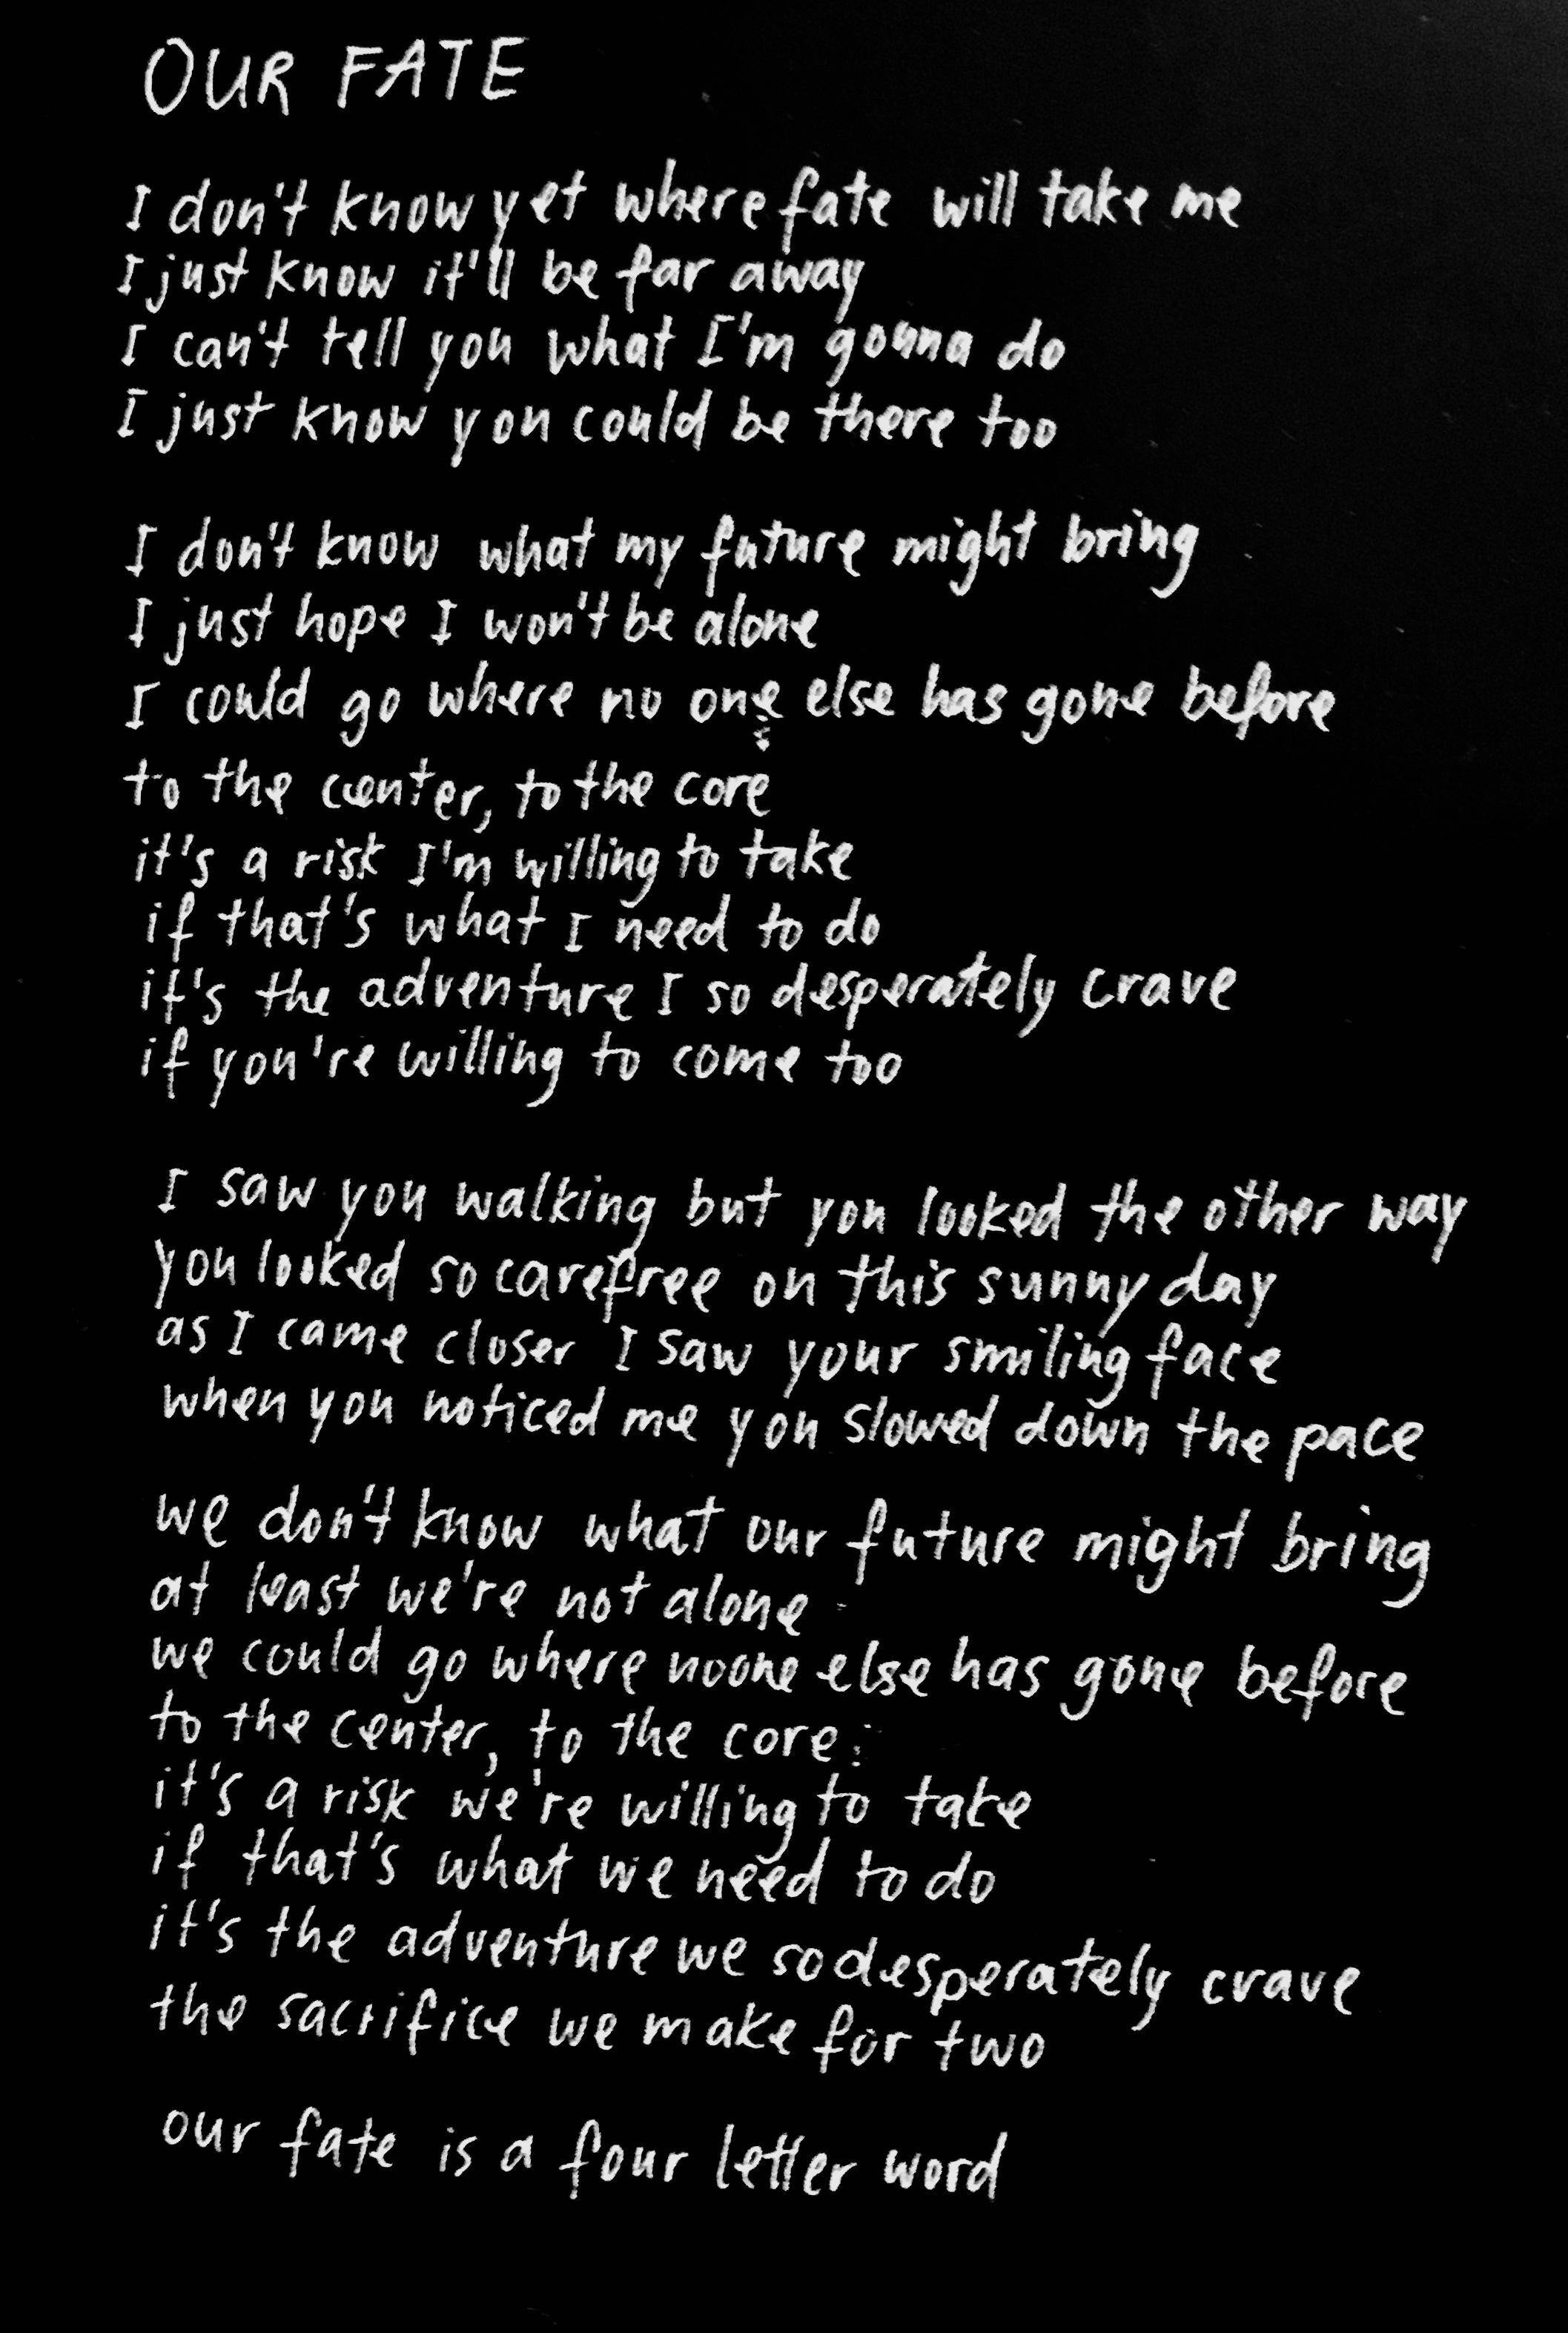 OUR FATE
I don't know yet where fate will take me
I just know it'll be far away
I can't tell you what I'm gonna do
I just know you could be there too
I don't know what my future might bring
I just hope I won't be alone
I could go where no one else has gone before
to the center, to the core
it's a risk I'm willing to take
if that's what I need to do
it's the adventure I so desperately crave
if you're willing to come too
I saw you walking but you looked the other way
you looked so carefree on this sunny day
as I came closer I saw your smiling face
when you noticed me you slowed down the pace
we don't know what our future might bring
at least we're not alone
we could go where noone else has gone before
to the center, to the core
it's a risk we're willing to take
if that's what we need to do
it's the adventure we so desperately crave
the sacrifice we make for two
our fate is a four letter word